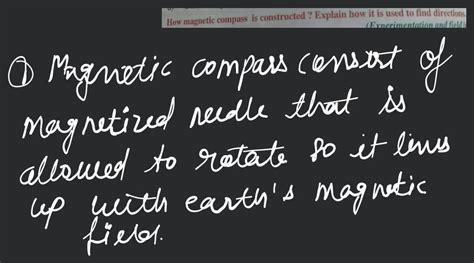 How magnetic compass is constructed ? Explain how it is used to find directions.
(Experimentation and field
① Magnetic compass consist of
magnetized needle that is
allowed to rotate so it lines
up with earth's magnetic
field.